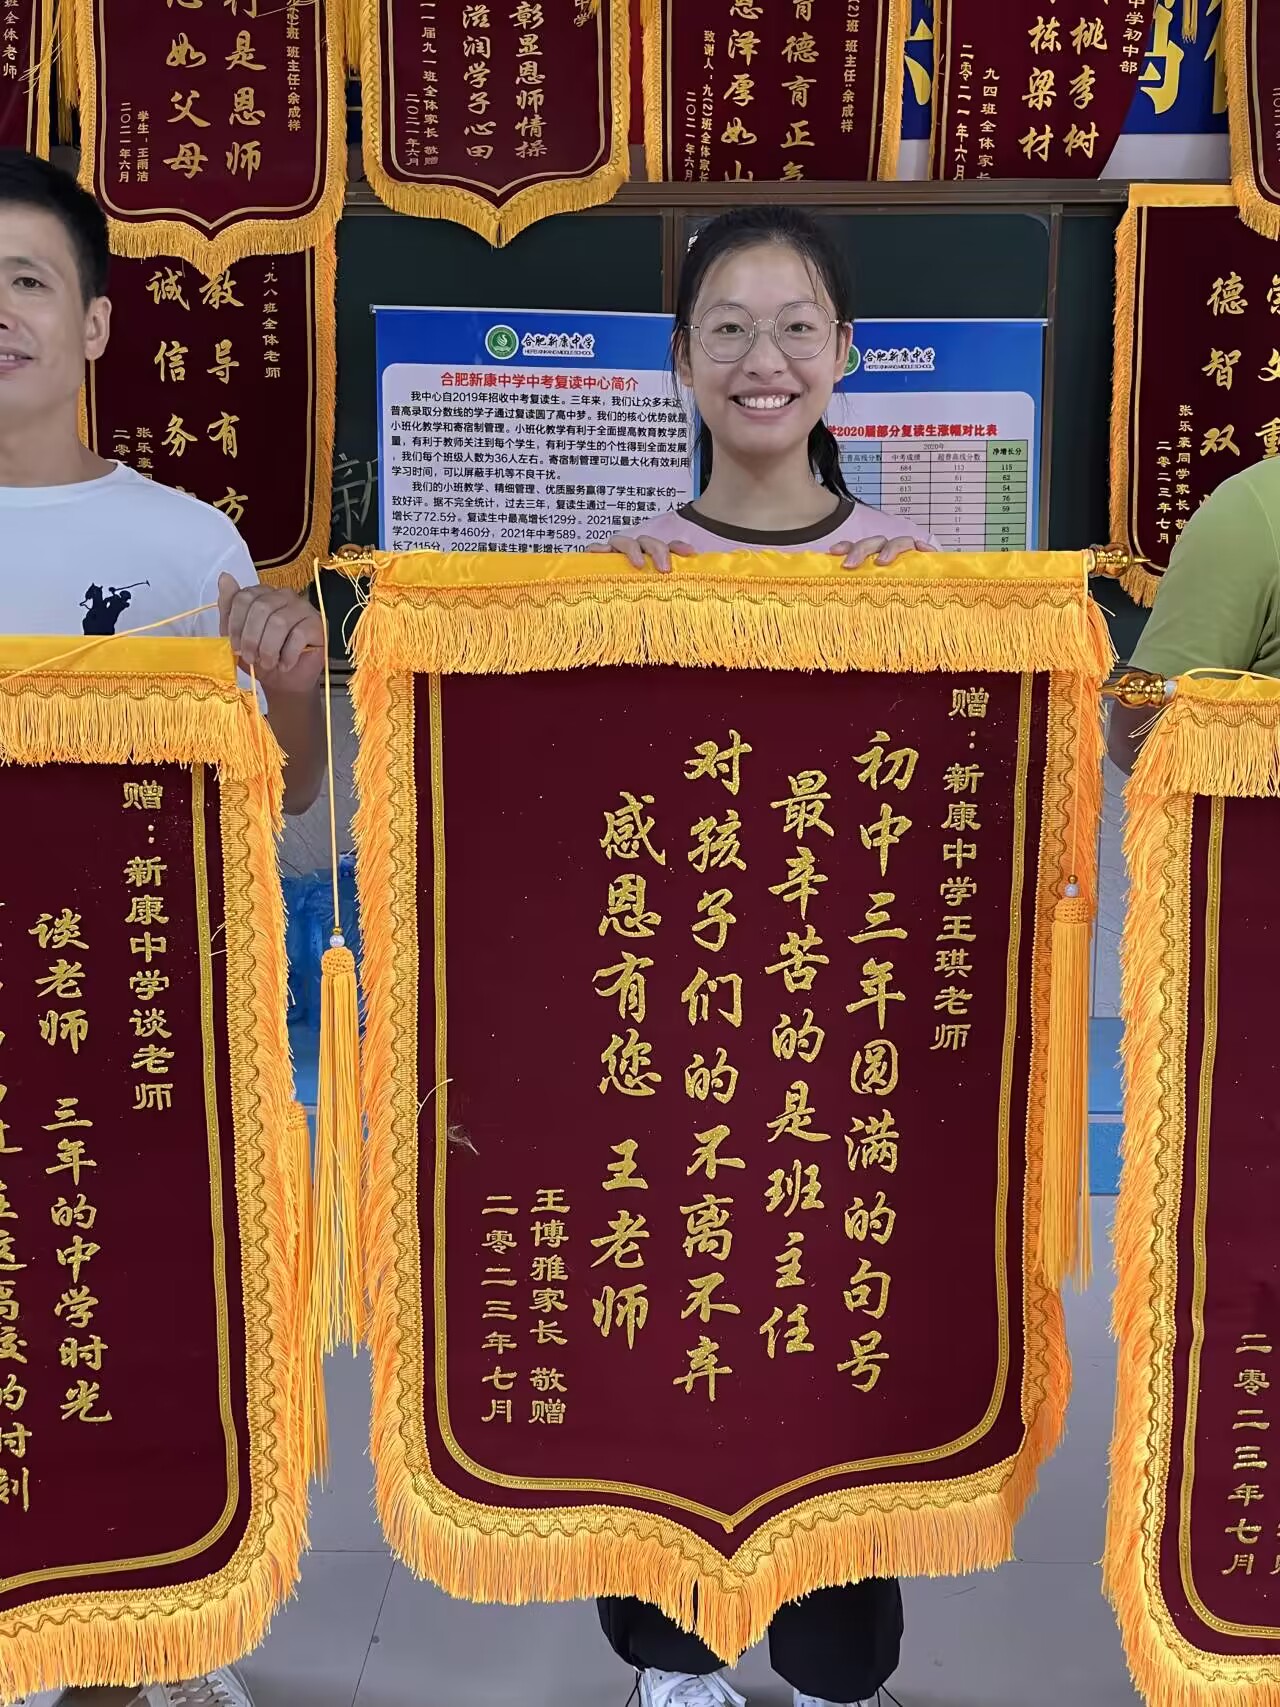 行是恩师
恩如父母
学生：王雨洁
二〇二一年六月
班主任：余成祥
彰显恩师情操
滋润学子心田
二〇二一年六月 敬赠
育德育正气
恩泽厚如山
班主任：余成祥
致谢人：九(2)班全体家长
二〇二一年六月
桃李树
栋梁材
中学初中部
九四班全体家长
二零二一年六月
九八班全体老师
教导有方
诚信务
德智双
张乐豪同学家长 敬
二零二三年七月
合肥新康中学
HEFEI XINKANG MIDDLE SCHOOL
合肥新康中学中考复读中心简介
我中心自2019年招收中考复读生。三年来，我们让众多未达
普高录取分数线的学子通过复读圆了高中梦。我们的核心优势就是
小班化教学和寄宿制管理。小班化教学有利于全面提高教育教学质
量，有利于教师关注到每个学生，有利于学生的个性得到全面发展
，我们每个班级人数为36人左右。寄宿制管理可以最大化有效利用
学习时间，可以屏蔽手机等不良干扰。
我们的小班教学、精细管理、优质服务赢得了学生和家长的一
致好评。据不完全统计，过去三年，复读生通过一年的复读，人均
增长了72.5分。复读生中最高增长129分。2021届复读生
学2020年中考460分，2021年中考589。2020
长了115分，2022届复读生穆*影增长了10
合肥新康中学
HEFEI XINKANG MIDDLE SCHOOL
2020届部分复读生涨幅对比表
2020年
普高线分数 中考成绩 超普高线分数 净增长分
-2 684 113 115
-1 632 61 62
-12 613 42 54
603 32 76
597 26 59
11
8 83
-1 87
赠：新康中学王琪老师
初中三年圆满的句号
最辛苦的是班主任
对孩子们的不离不弃
感恩有您 王老师
王博雅家长 敬赠
二零二三年七月
赠：新康中学谈老师
谈老师 三年的中学时光
的时刻
二零二三年七月